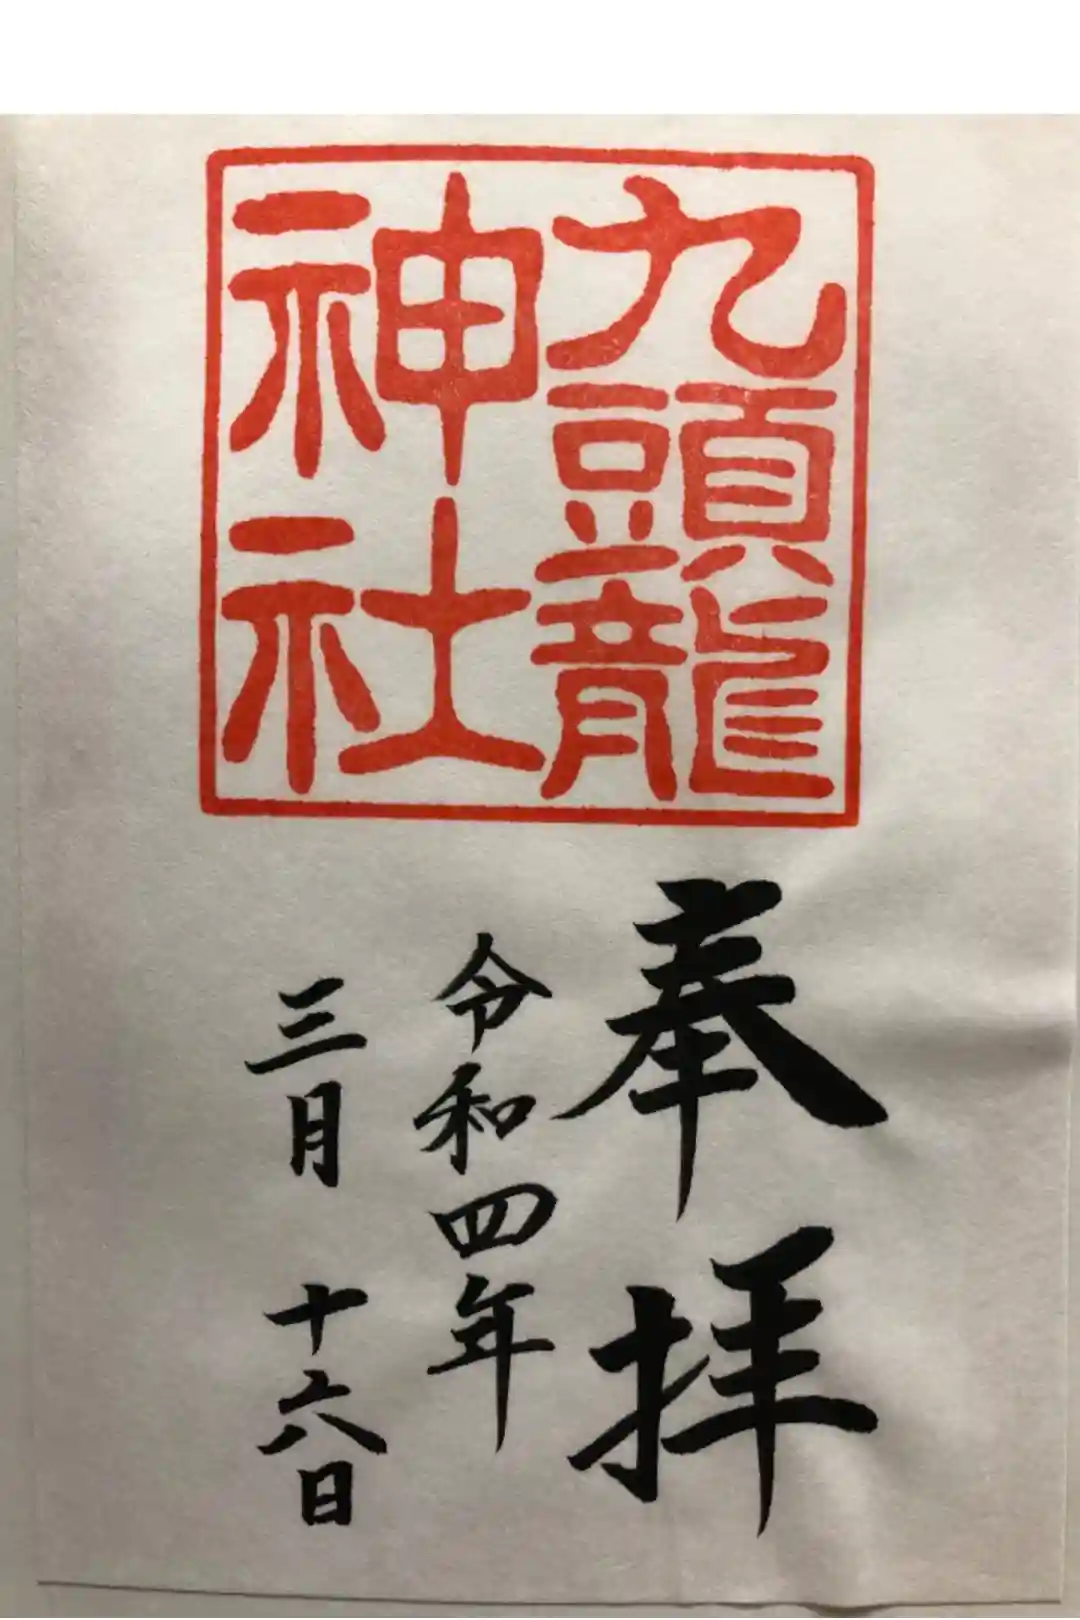 九頭龍
神社
奉拝
令和四年
三月十六日